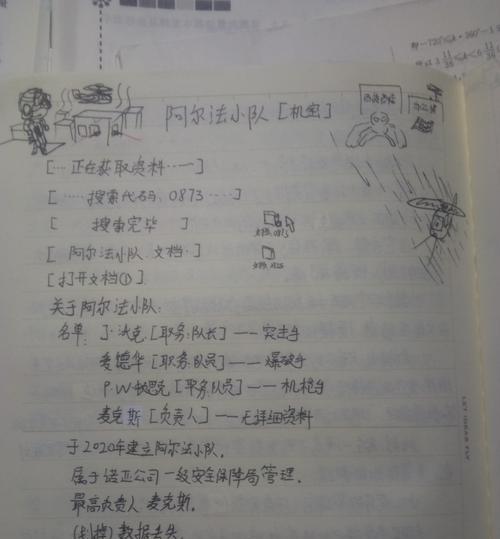 阿尔法小队［机密］
［…正在获取资料…］
［……搜索代码:0873……］
［ 搜索完毕 ］
［ 阿尔法小队.文档.］
［打开文档①］
关于阿尔法小队:
名单: J·沃克.［职务:队长］——突击手
爱德华［职务:队员］——爆破手
P·W·［职务队员］——机枪手
麦克斯［负责人］——无详细资料
于2020年建立阿尔法小队.
属于诺亚公司一级安全保障局管理.
最高负责人 麦克斯.
数据丢失.
LET IDEAS FLY